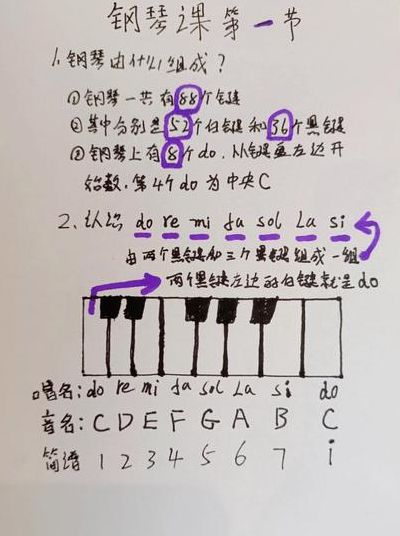 钢琴课第一节
1. 钢琴由什么组成？
①钢琴一共有88个键
②其中分别是52个白键和36个黑键
③钢琴上有8个do.从键盘左边开
始数.第4个do为中央C
2. 认识 do re mi fa sol La si
由两个黑键和三个黑键组成一组
两个黑键左边的白键就是do
唱名: do re mi fa sol La si do
音名: C D E F G A B C
简谱 1 2 3 4 5 6 7 i